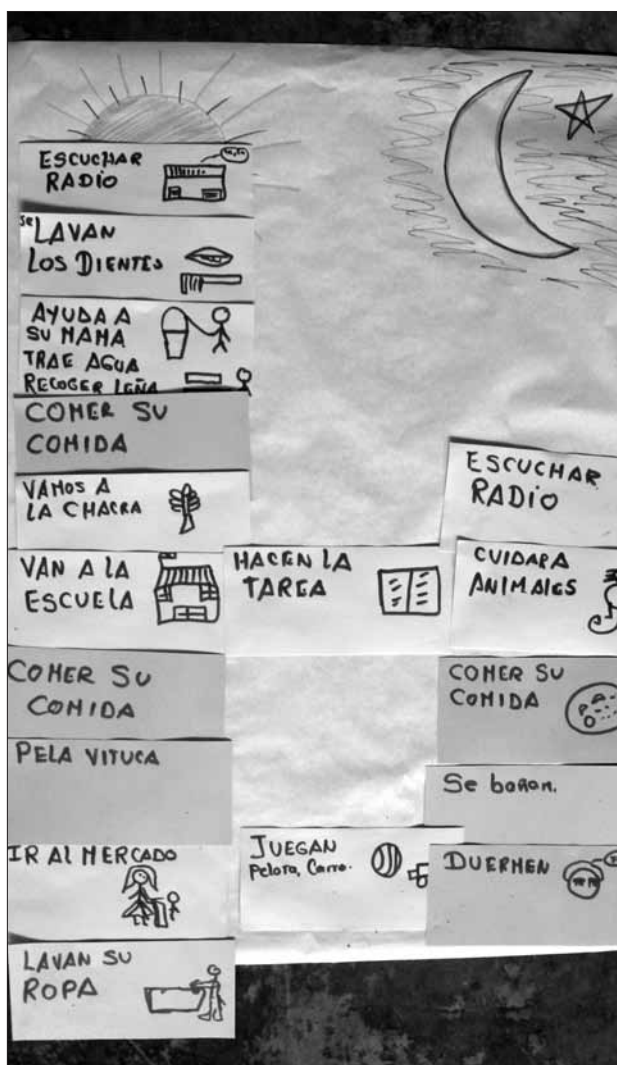 ESCUCHAR
RADIO
se LAVAN
LOS DIENTES
AYUDA A
SU MAMA
TRAE AGUA
RECOGER LEÑA
COMER SU
COMIDA
VAMOS A
LA CHACRA
VAN A LA
ESCUELA
COMER SU
COMIDA
PELA VITUCA
IR AL MERCADO
LAVAN SU
ROPA
HACEN LA
TAREA
JUEGAN
Pelota, Carro.
ESCUCHAR
RADIO
CUIDAR A
ANIMALES
COMER SU
COMIDA
Se bañan.
DUERMEN